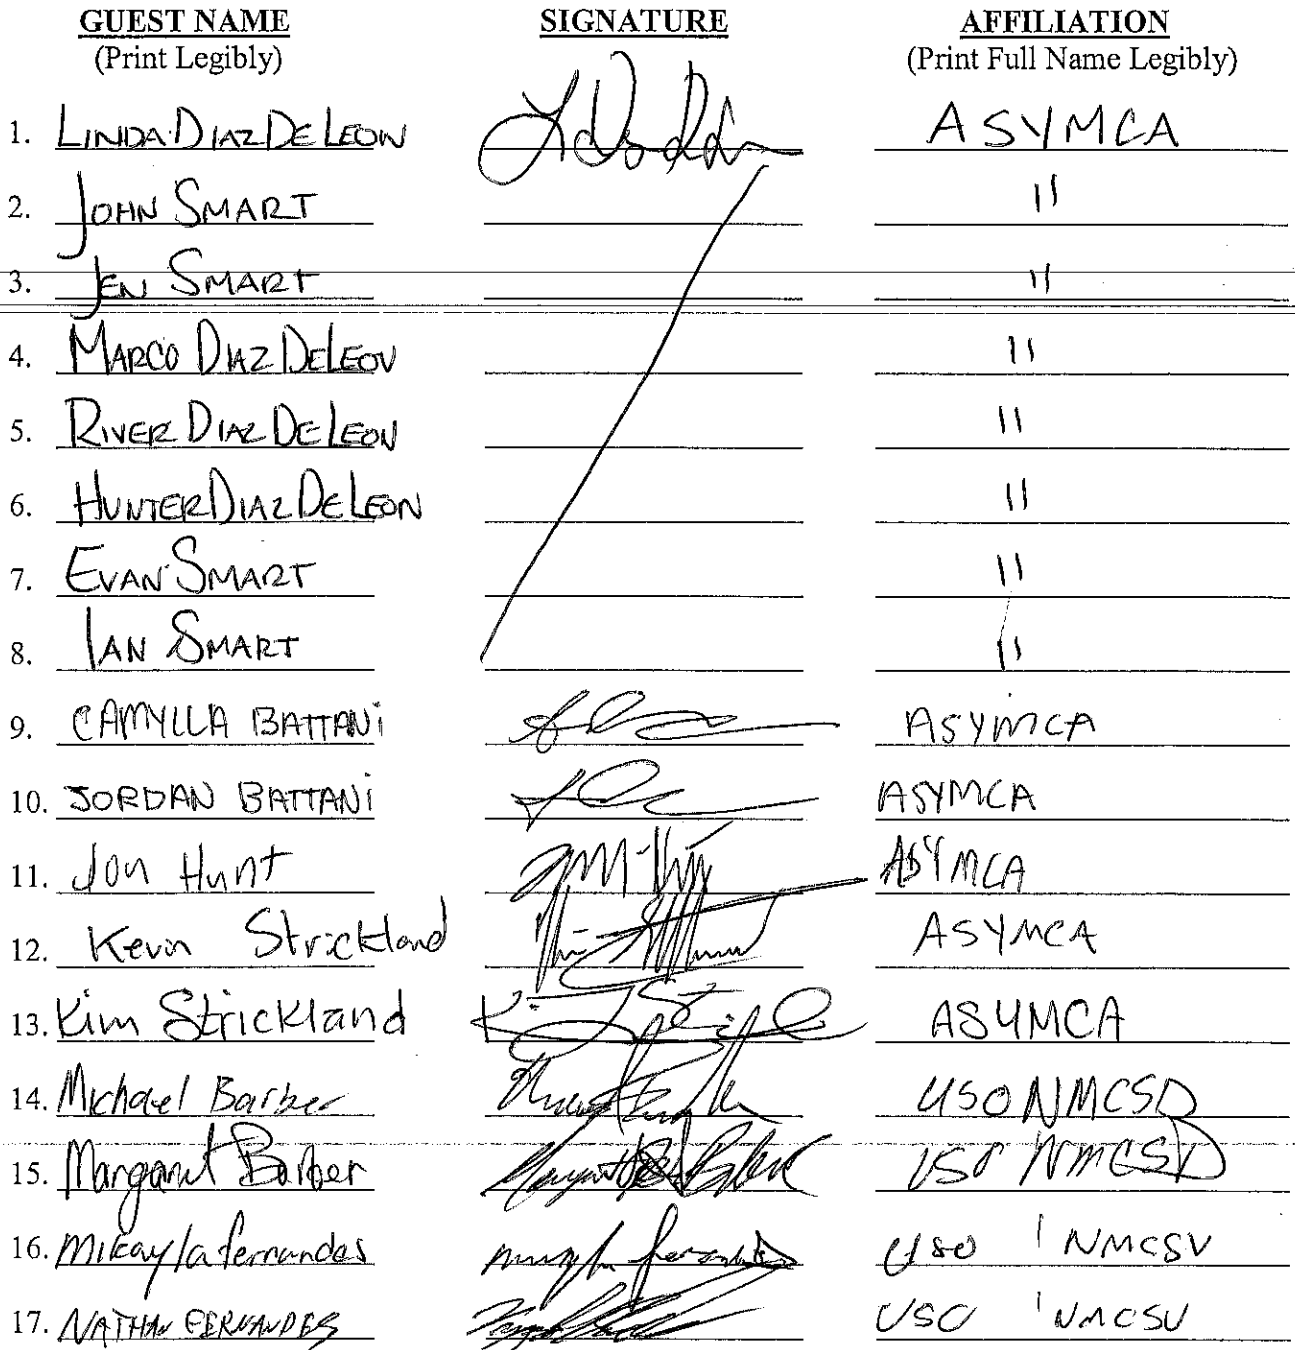 GUEST NAME SIGNATURE AFFILIATION
(Print Legibly) (Print Full Name Legibly)
1. LINDA DIAZ DE LEON ASYMCA
2. JOHN SMART "
3. JEN SMART "
4. MARCO DIAZ DELEON "
5. RIVER DIAZ DE LEON "
6. HUNTER DIAZ DE LEON "
7. EVAN SMART "
8. IAN SMART "
9. CAMYLLA BATTANi ASYMCA
10. JORDAN BATTANi ASYMCA
11. Jon Hunt ASYMCA
12. Kevin Strickland ASYMCA
13. Kim Strickland ASYMCA
14. Michael Barber USO NMCSD
15. Margaret Barber USO NMCSD
16. Mikayla fernandes USO NMCSV
17. NATHAN FERNANDES USO NMCSV